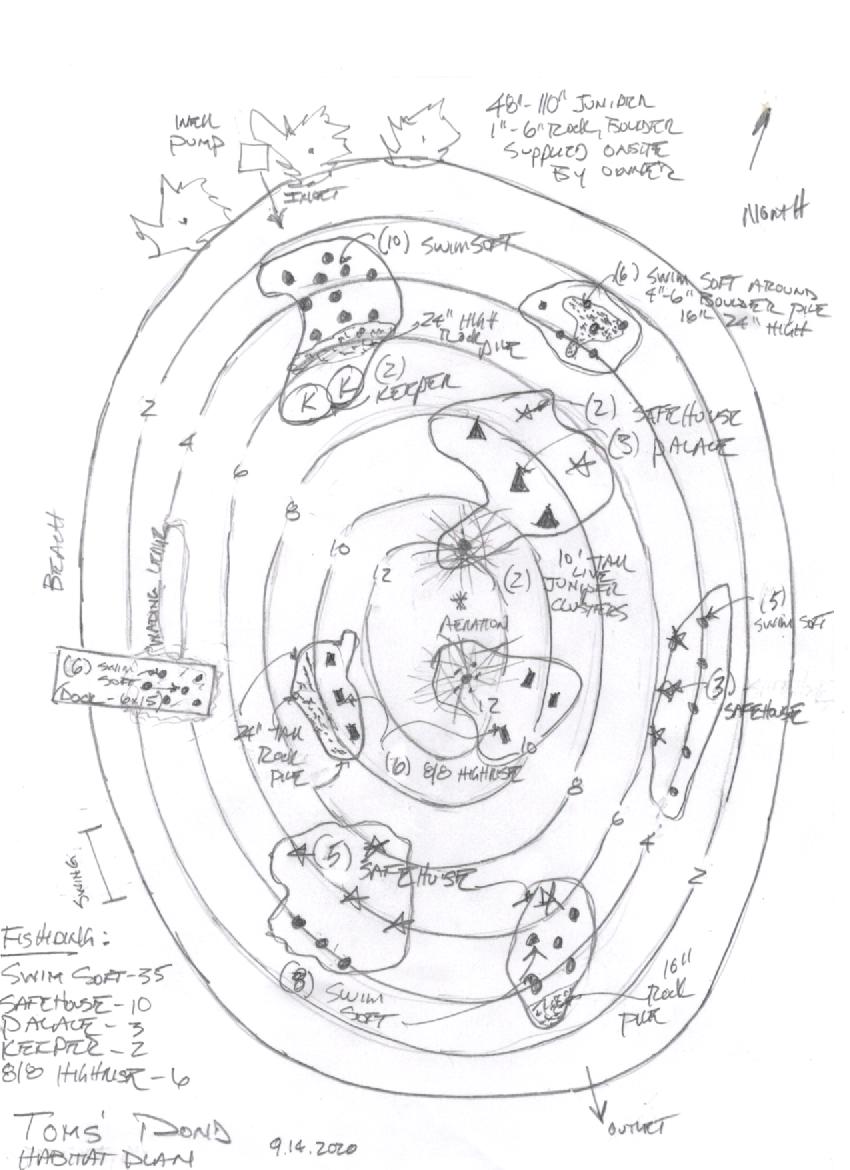 48"-110" JUNIPER
1"-6" ROCK, BOULDER
SUPPLIED ONSITE
BY OWNER
WELL
PUMP
INLET
NORTH
(10) SWIM SOFT
(6) SWIM SOFT AROUND
4"-6" BOULDER PILE
16"- 24" HIGH
24" HIGH
ROCK
PILE
K K
(2)
KEEPER
(2) SAFEHOUSE
(3) PALACE
2
4
6
8
10
12
BEACH
WADING
(2)
10' TALL
LIVE
JUNIPER
CLUSTERS
AERATION
(5)
SWIM SOFT
(6) SWIM
SOFT
DOCK - 6x15
(3)
SAFEHOUSE
24" TALL
ROCK
PILE
12
10
(6) 8/8 HIGHRISE
8
6
4
2
SWING
(5)
SAFEHOUSE
(8) SWIM
SOFT
16"
ROCK
PILE
FISHIDING:
SWIM SOFT-35
SAFEHOUSE-10
PALACE-3
KEEPER-2
8/8 HIGHRISE-6
TOMS' POND
HABITAT PLAN
9.14.2020
OUTLET